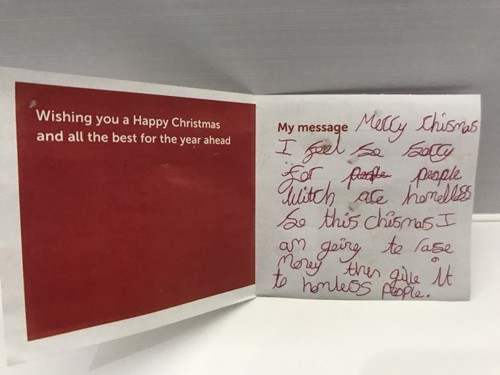 Wishing you a Happy Christmas
and all the best for the year ahead
My message Merry Chismas
I feel so sorry
for people people
Witch are homelless
So this chismas I
am going to rase
money then give it
to homless people.